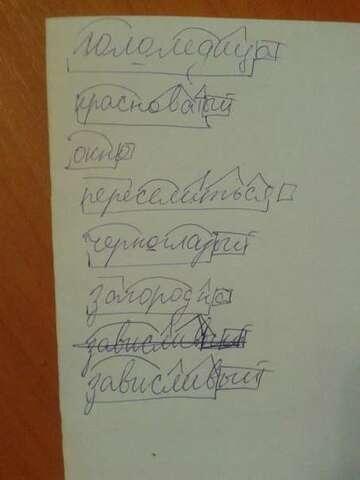 гололедица
красноватый
окно
переселиться
черноглазый
загородка
зависливый
зависливый